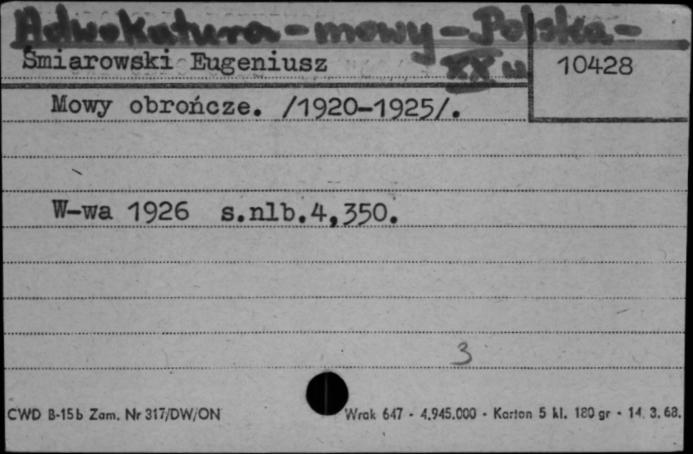 Adwokatura - mowy - Polska -
XX w
Śmiarowski Eugeniusz
10428
Mowy obrończe. /1920-1925/.
W-wa 1926 s.nlb.4,350.
3
CWD B-15b Zam. Nr 317/DW/ON
Wrak 647 - 4.945.000 - Karton 5 kl. 180 gr - 14. 3. 68.